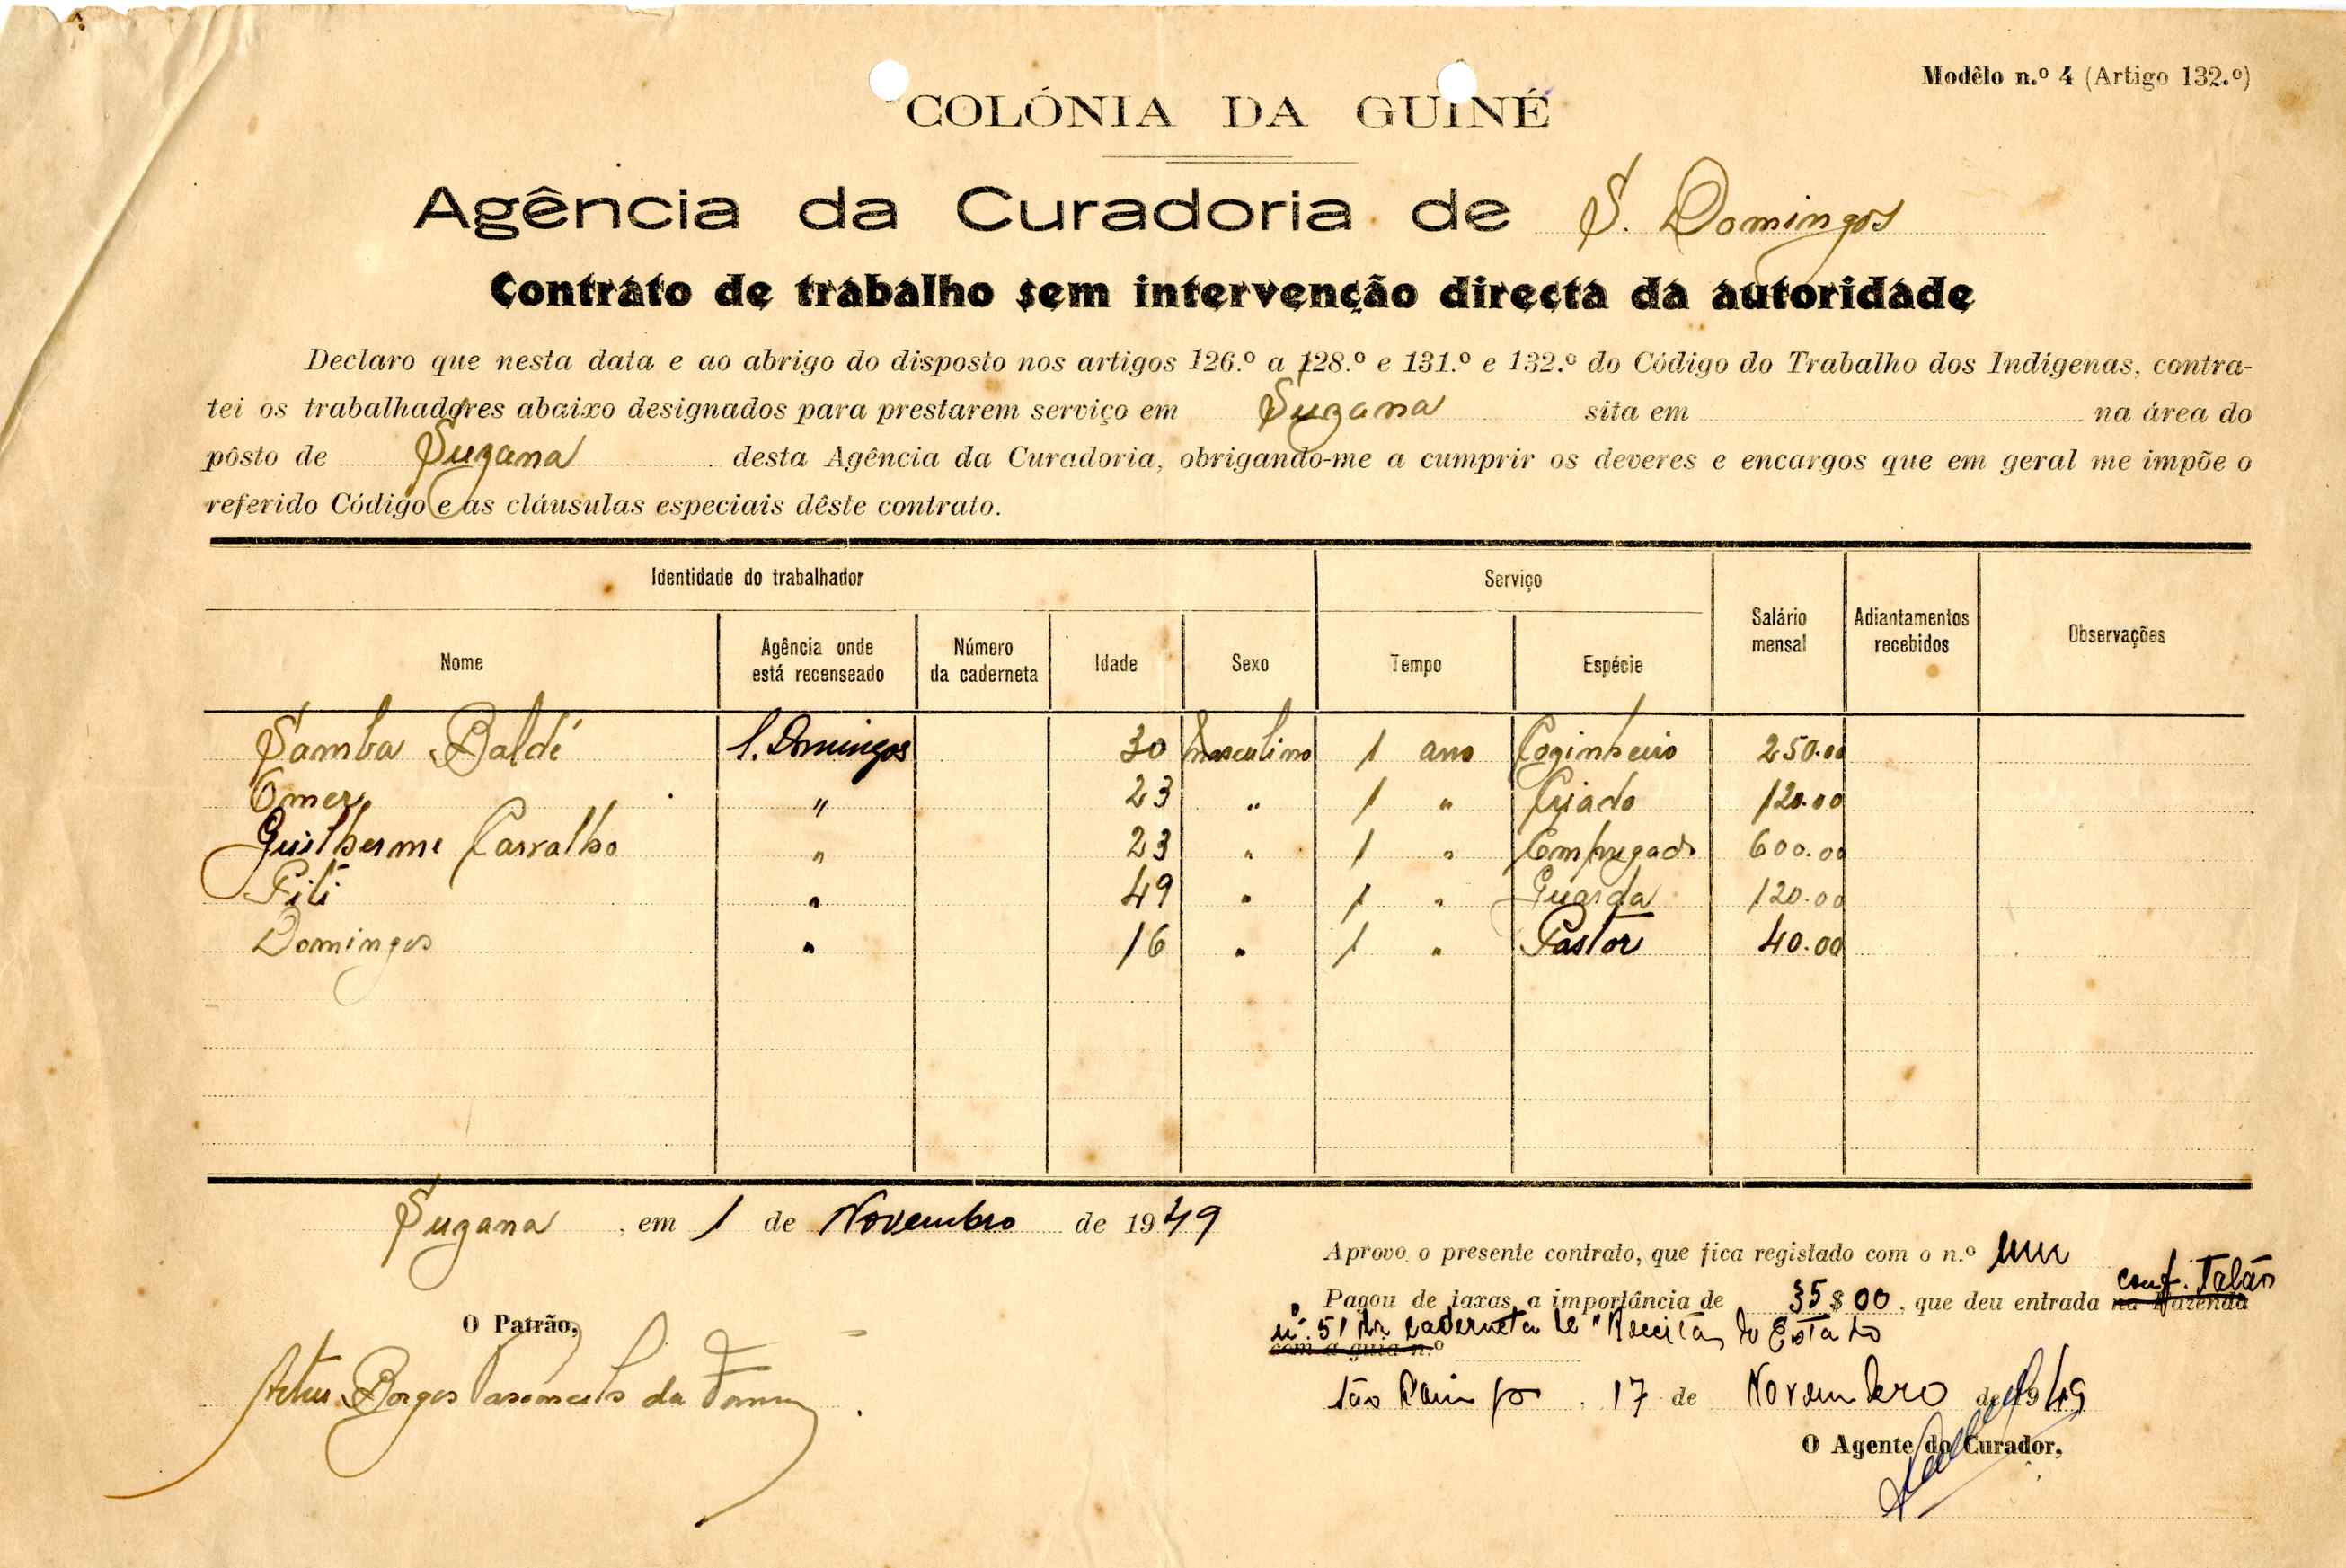 Modêlo n.º 4 (Artigo 132.º)
COLÓNIA DA GUINÉ
Agência da Curadoria de S. Domingos
Contrato de trabalho sem intervenção directa da autoridade
Declaro que nesta data e ao abrigo do disposto nos artigos 126.º a 128.º e 131.º e 132.º do Código do Trabalho dos Indígenas, contra-
tei os trabalhadores abaixo designados para prestarem serviço em Suzana sita em na área do
pôsto de Suzana desta Agência da Curadoria, obrigando-me a cumprir os deveres e encargos que em geral me impõe o
referido Código e as cláusulas especiais dêste contrato.
Identidade do trabalhador Serviço Salário mensal Adiantamentos recebidos Observações
Nome Agência onde está recenseado Número da caderneta Idade Sexo Tempo Espécie
Samba Baldé S. Domingos 30 Masculino 1 ano Coginheiro 250.00
Omer " 23 " 1 " Criado 120.00
Guilherme Carvalho " 23 " 1 " Empregado 600.00
Fili " 49 " 1 " Guarda 120.00
Domingos " 16 " 1 " Pastor 40.00
Suzana, em 1 de Novembro de 1949
Aprovo o presente contrato, que fica registado com o n.º um
conf. Talão
Pagou de taxas a importância de 35$00, que deu entrada na Fazenda
n.º 51 da caderneta de "Receitas do Estado
com a guia n.º
O Patrão,
Artur Borges Vasconcelos da
São Domingos, 17 de Novembro de 1949
O Agente do Curador,